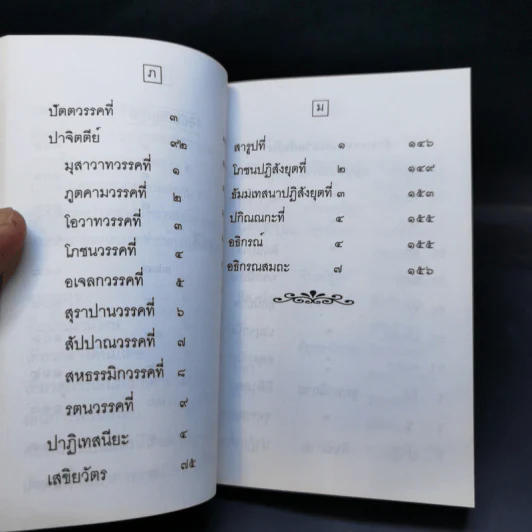 ภ
ปัตตวรรคที่ ๓
ปาจิตตีย์ ๙๒
มุสาวาทวรรคที่ ๑
ภูตคามวรรคที่ ๒
โอวาทวรรคที่ ๓
โภชนวรรคที่ ๔
อเจลกวรรคที่ ๕
สุราปานวรรคที่ ๖
สัปปาณวรรคที่ ๗
สหธรรมิกวรรคที่ ๘
รตนวรรคที่ ๙
ปาฏิเทสนียะ ๔
เสขิยวัตร ๗๕
ม
สารูปที่ ๑ ๑๔๖
โภชนปฏิสังยุตที่ ๒ ๑๔๙
ธัมมเทสนาปฏิสังยุตที่ ๓ ๑๕๓
ปกิณณกะที่ ๔ ๑๕๕
อธิกรณ์ ๔ ๑๕๕
อธิกรณสมถะ ๗ ๑๕๖